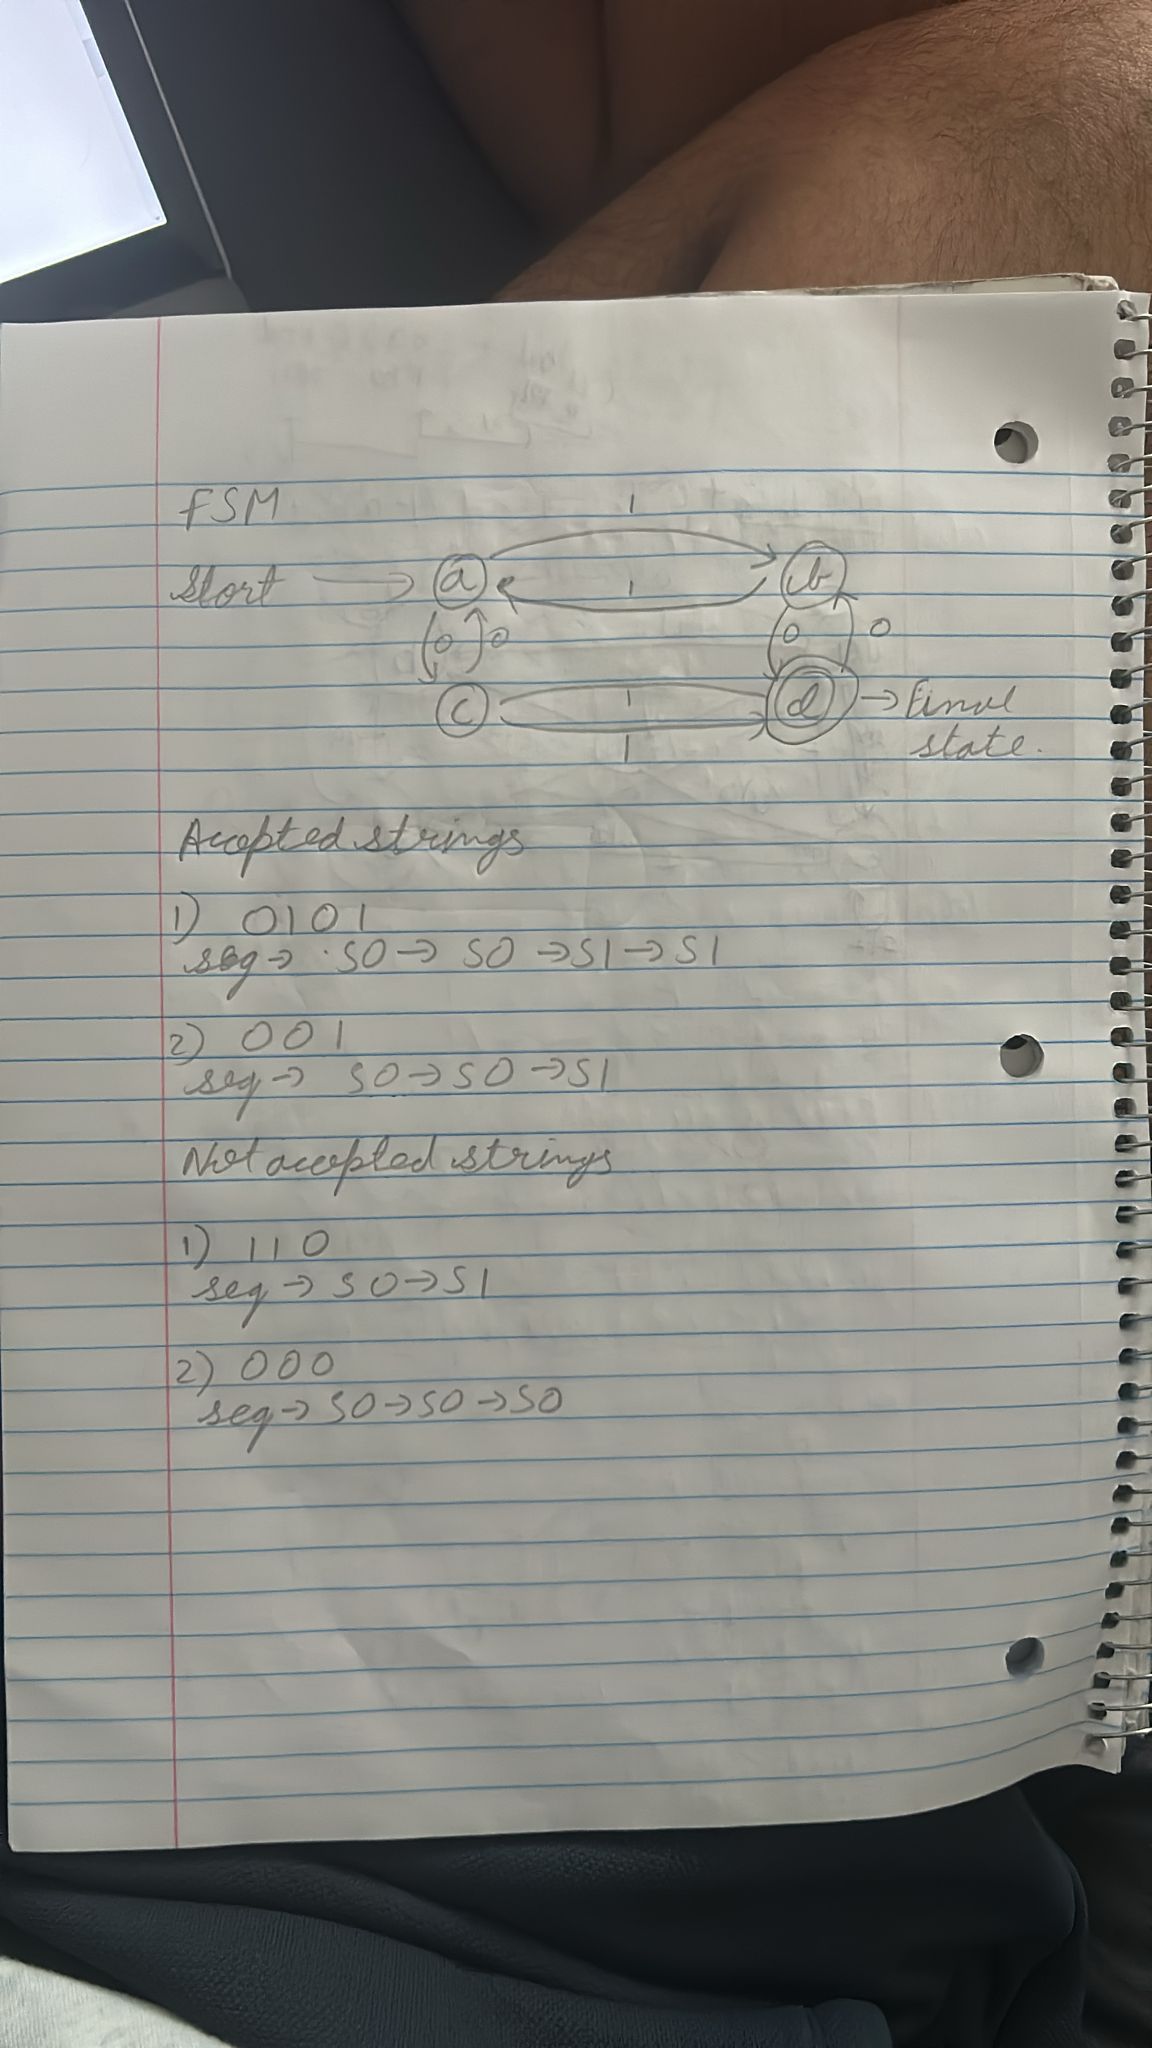 FSM
1
Start → a b
1
0 0 0 0
c 1 d → Final
1 state.
Accepted strings
1) 0101
seq → S0 → S0 → S1 → S1
2) 001
seq → S0 → S0 → S1
Not accepted strings
1) 110
seq → S0 → S1
2) 000
seq → S0 → S0 → S0